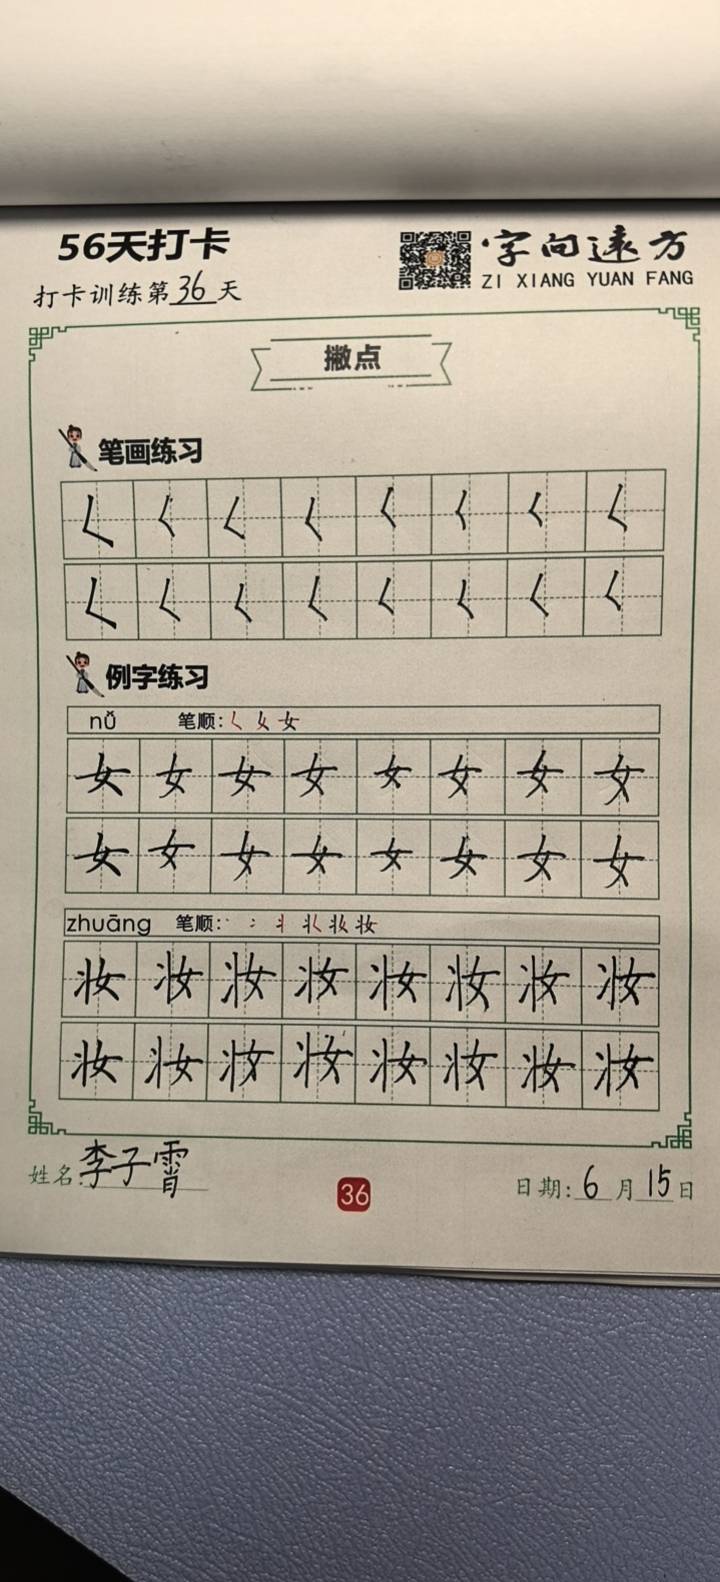 56天打卡
字向远方
ZI XIANG YUAN FANG
打卡训练第36天
撇点
笔画练习
𡿨𡿨𡿨𡿨𡿨𡿨𡿨𡿨
𡿨𡿨𡿨𡿨𡿨𡿨𡿨𡿨
例字练习
nǚ 笔顺:𡿨 女 女
女女女女女女女女
女女女女女女女女
zhuāng 笔顺: 妆妆
妆妆妆妆妆妆妆妆
妆妆妆妆妆妆妆妆
姓名:李子霄
36
日期:6月15日